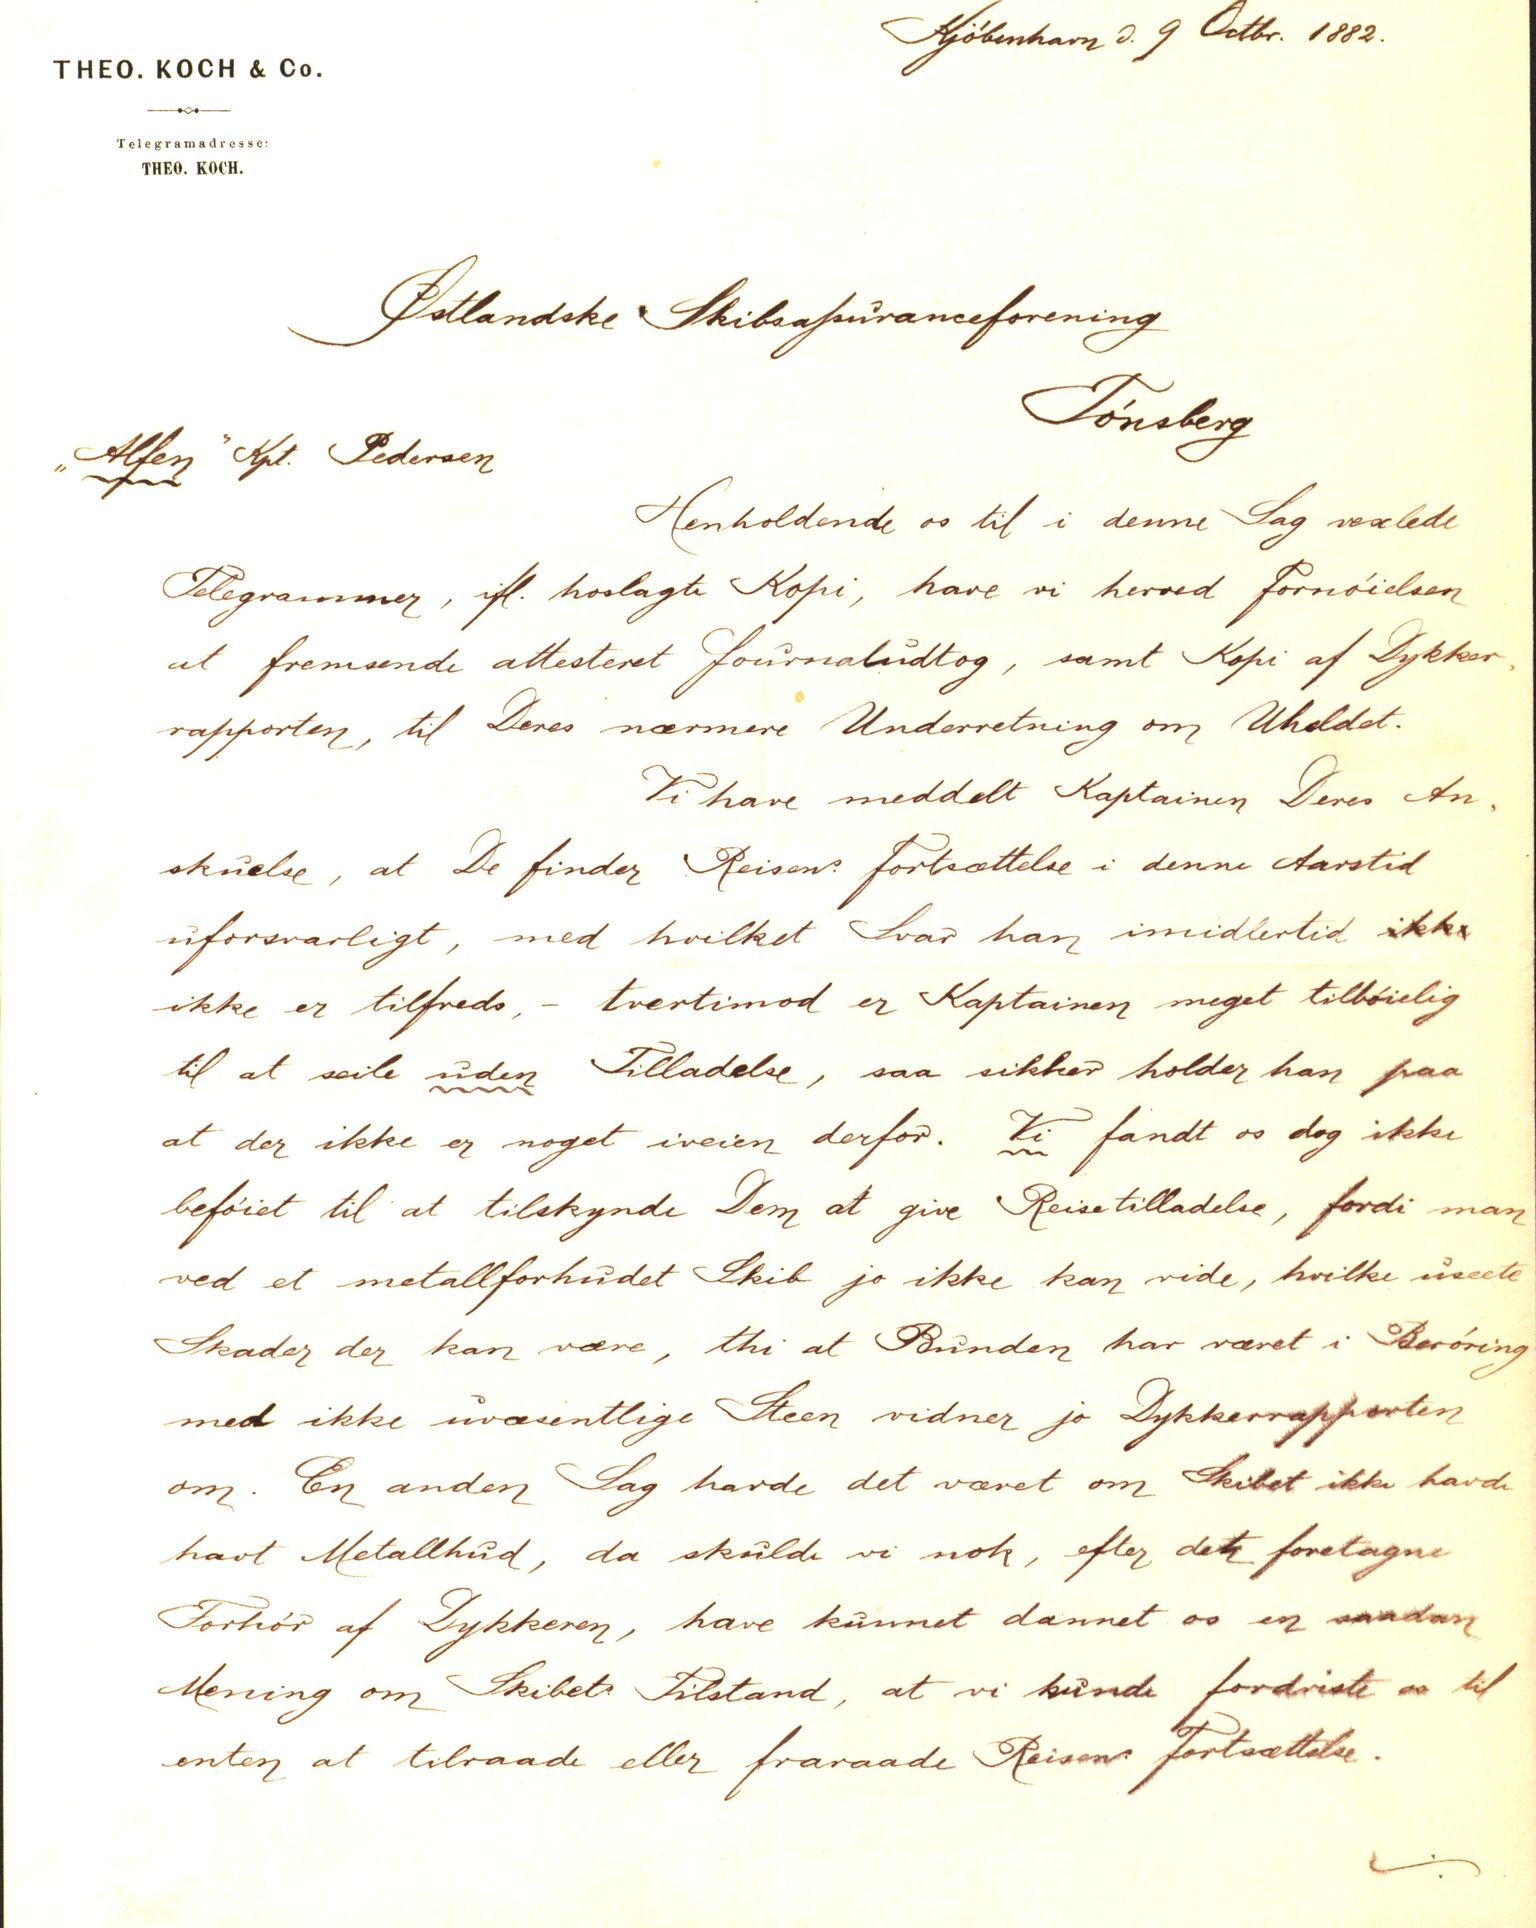 Kjöbenhavn d. 9 Octbr. 1882.
THEO. KOCH & Co.
Telegramadresse:
THEO. KOCH.
Østlandske Skibsassuranceforening
Tönsberg
„Alfen" Kpt. Pedersen
Henholdende os til i denne Sag vexlede
Telegrammer, ifl. hoslagte Kopi, have vi herved Fornöielsen
at fremsende attesteret Journaludtog, samt Kopi af Dykker-
rapporten, til Deres nærmere Underretning om Uheldet.
Vi have meddelt Kaptainen Deres An-
skuelse, at De finder Reisens Fortsættelse i denne Aarstid
uforsvarligt, med hvilket Svar han imidlertid ikke
ikke er tilfreds, - tvertimod er Kaptainen meget tilböielig
til at seile uden Tilladelse, saa sikker holder han paa
at der ikke er noget iveien derfor. Vi fandt os dog ikke
beföiet til at tilskynde Dem at give Reisetilladelse, fordi man
ved et metallforhudet Skib jo ikke kan vide, hvilke useete
Skader der kan være, thi at Bunden har været i Beröring
med ikke uvæsentlige Steen vidner jo Dykkerrapporten
om. En anden Sag havde det været om Skibet ikke havde
havt Metallhud, da skulde vi nok, efter det foretagne
Forhör af Dykkeren, have kunnet dannet os en saadan
Mening om Skibets Tilstand, at vi kunde fordriste os til
enten at tilraade eller fraraade Reisens Fortsættelse.